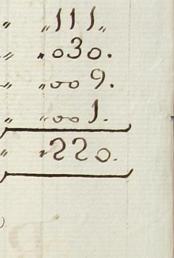 „ „111„
„ „030.
„ „009.
„ „001.
„ „220.